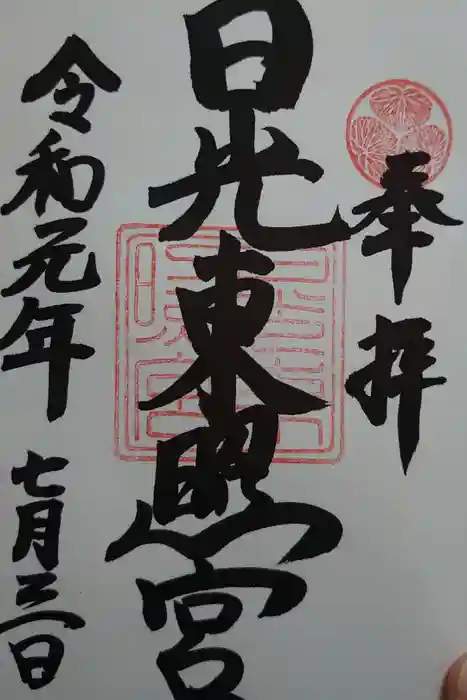 奉拝
日光東照宮
令和元年
七月三日